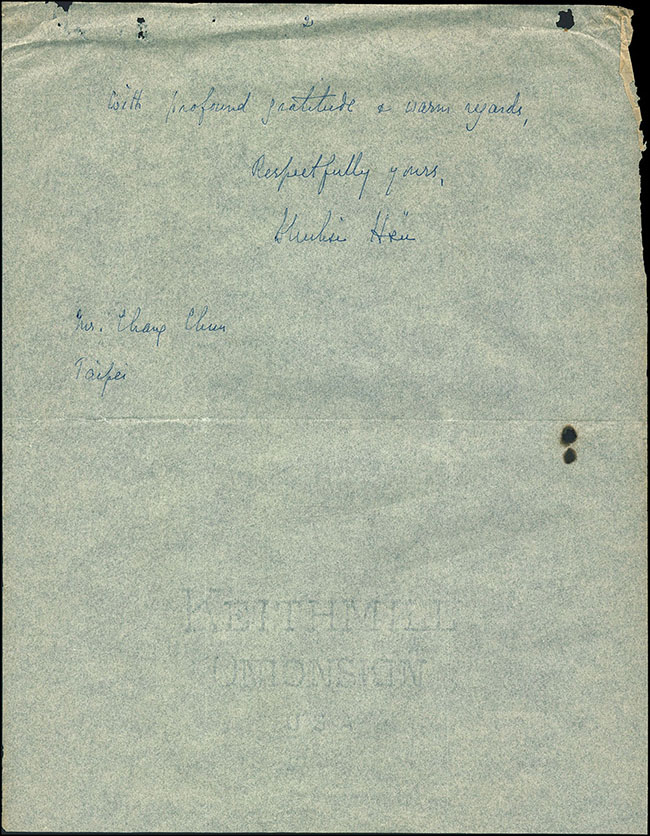 2
With profound gratitude & warm regards,
Respectfully yours,
Shuhsi Hsü
Mr. Chang Chun
Taipei
KEITHMILL
ONIONSKIN
U S A